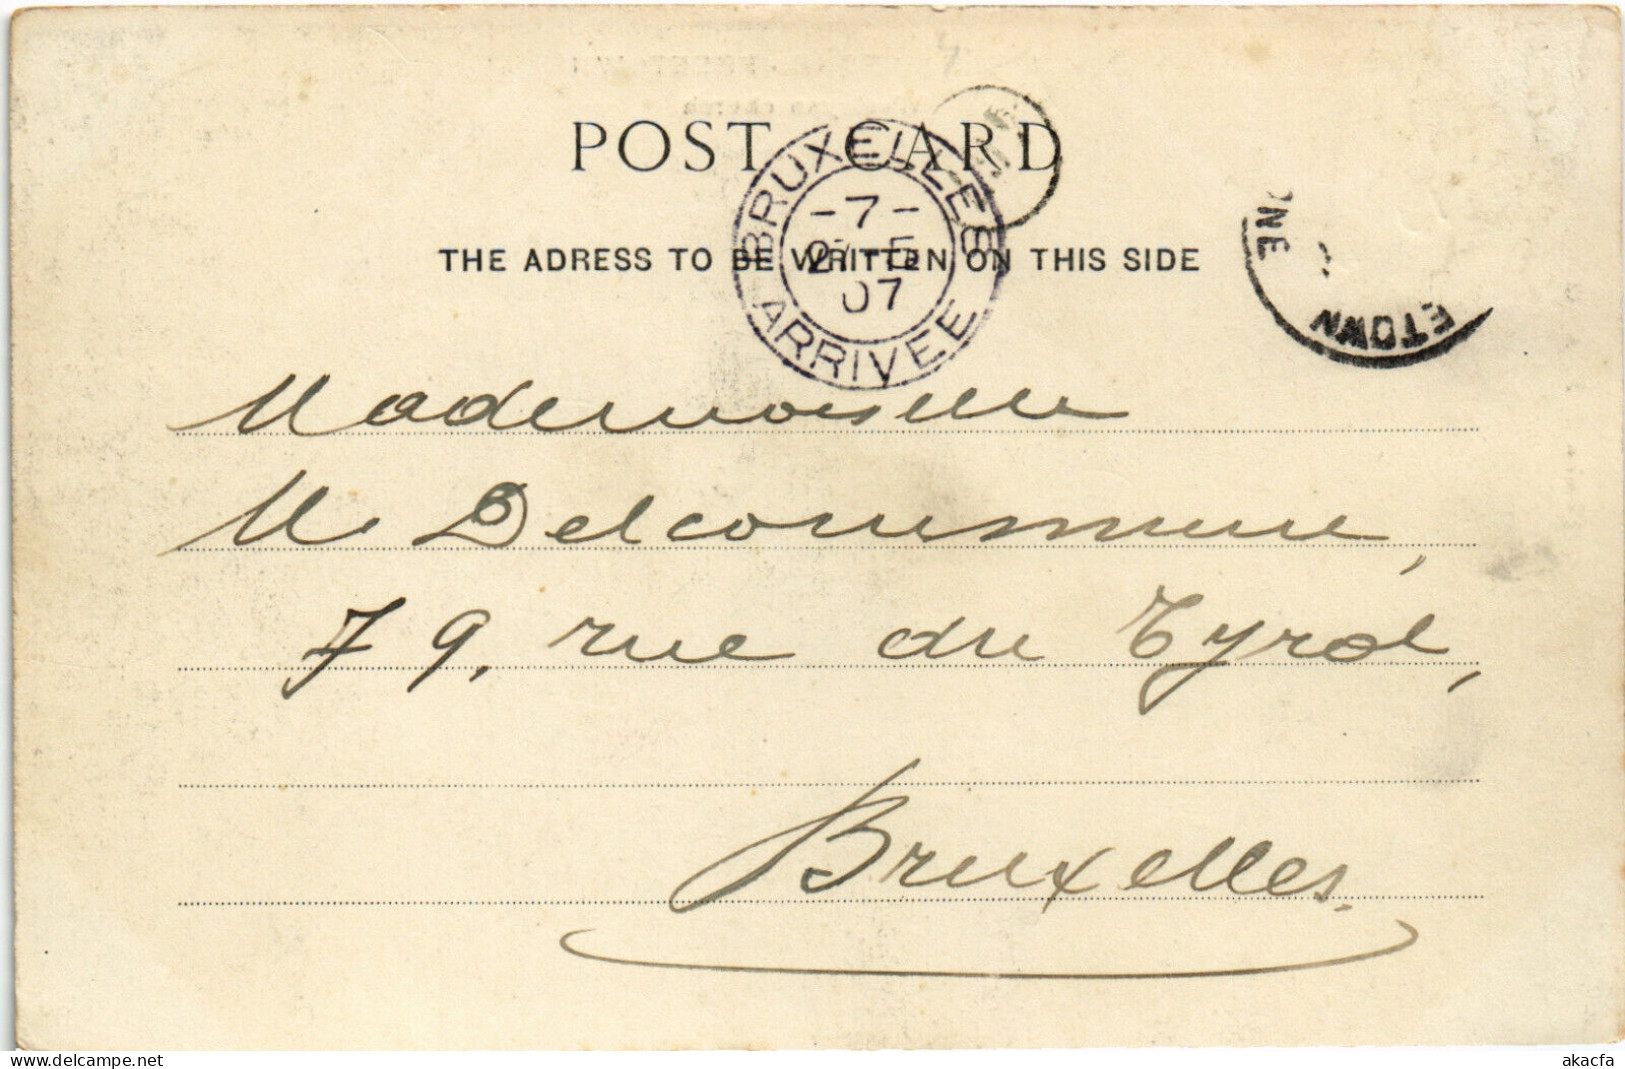 POST CARD
THE ADRESS TO BE WRITTEN ON THIS SIDE
BRUXELLES
-7-
07
ARRIVEE
ETOWN
ONE
Mademoiselle
M. Delcommune,
79, rue du Tyrol,
Bruxelles.
www.delcampe.net
akacfa